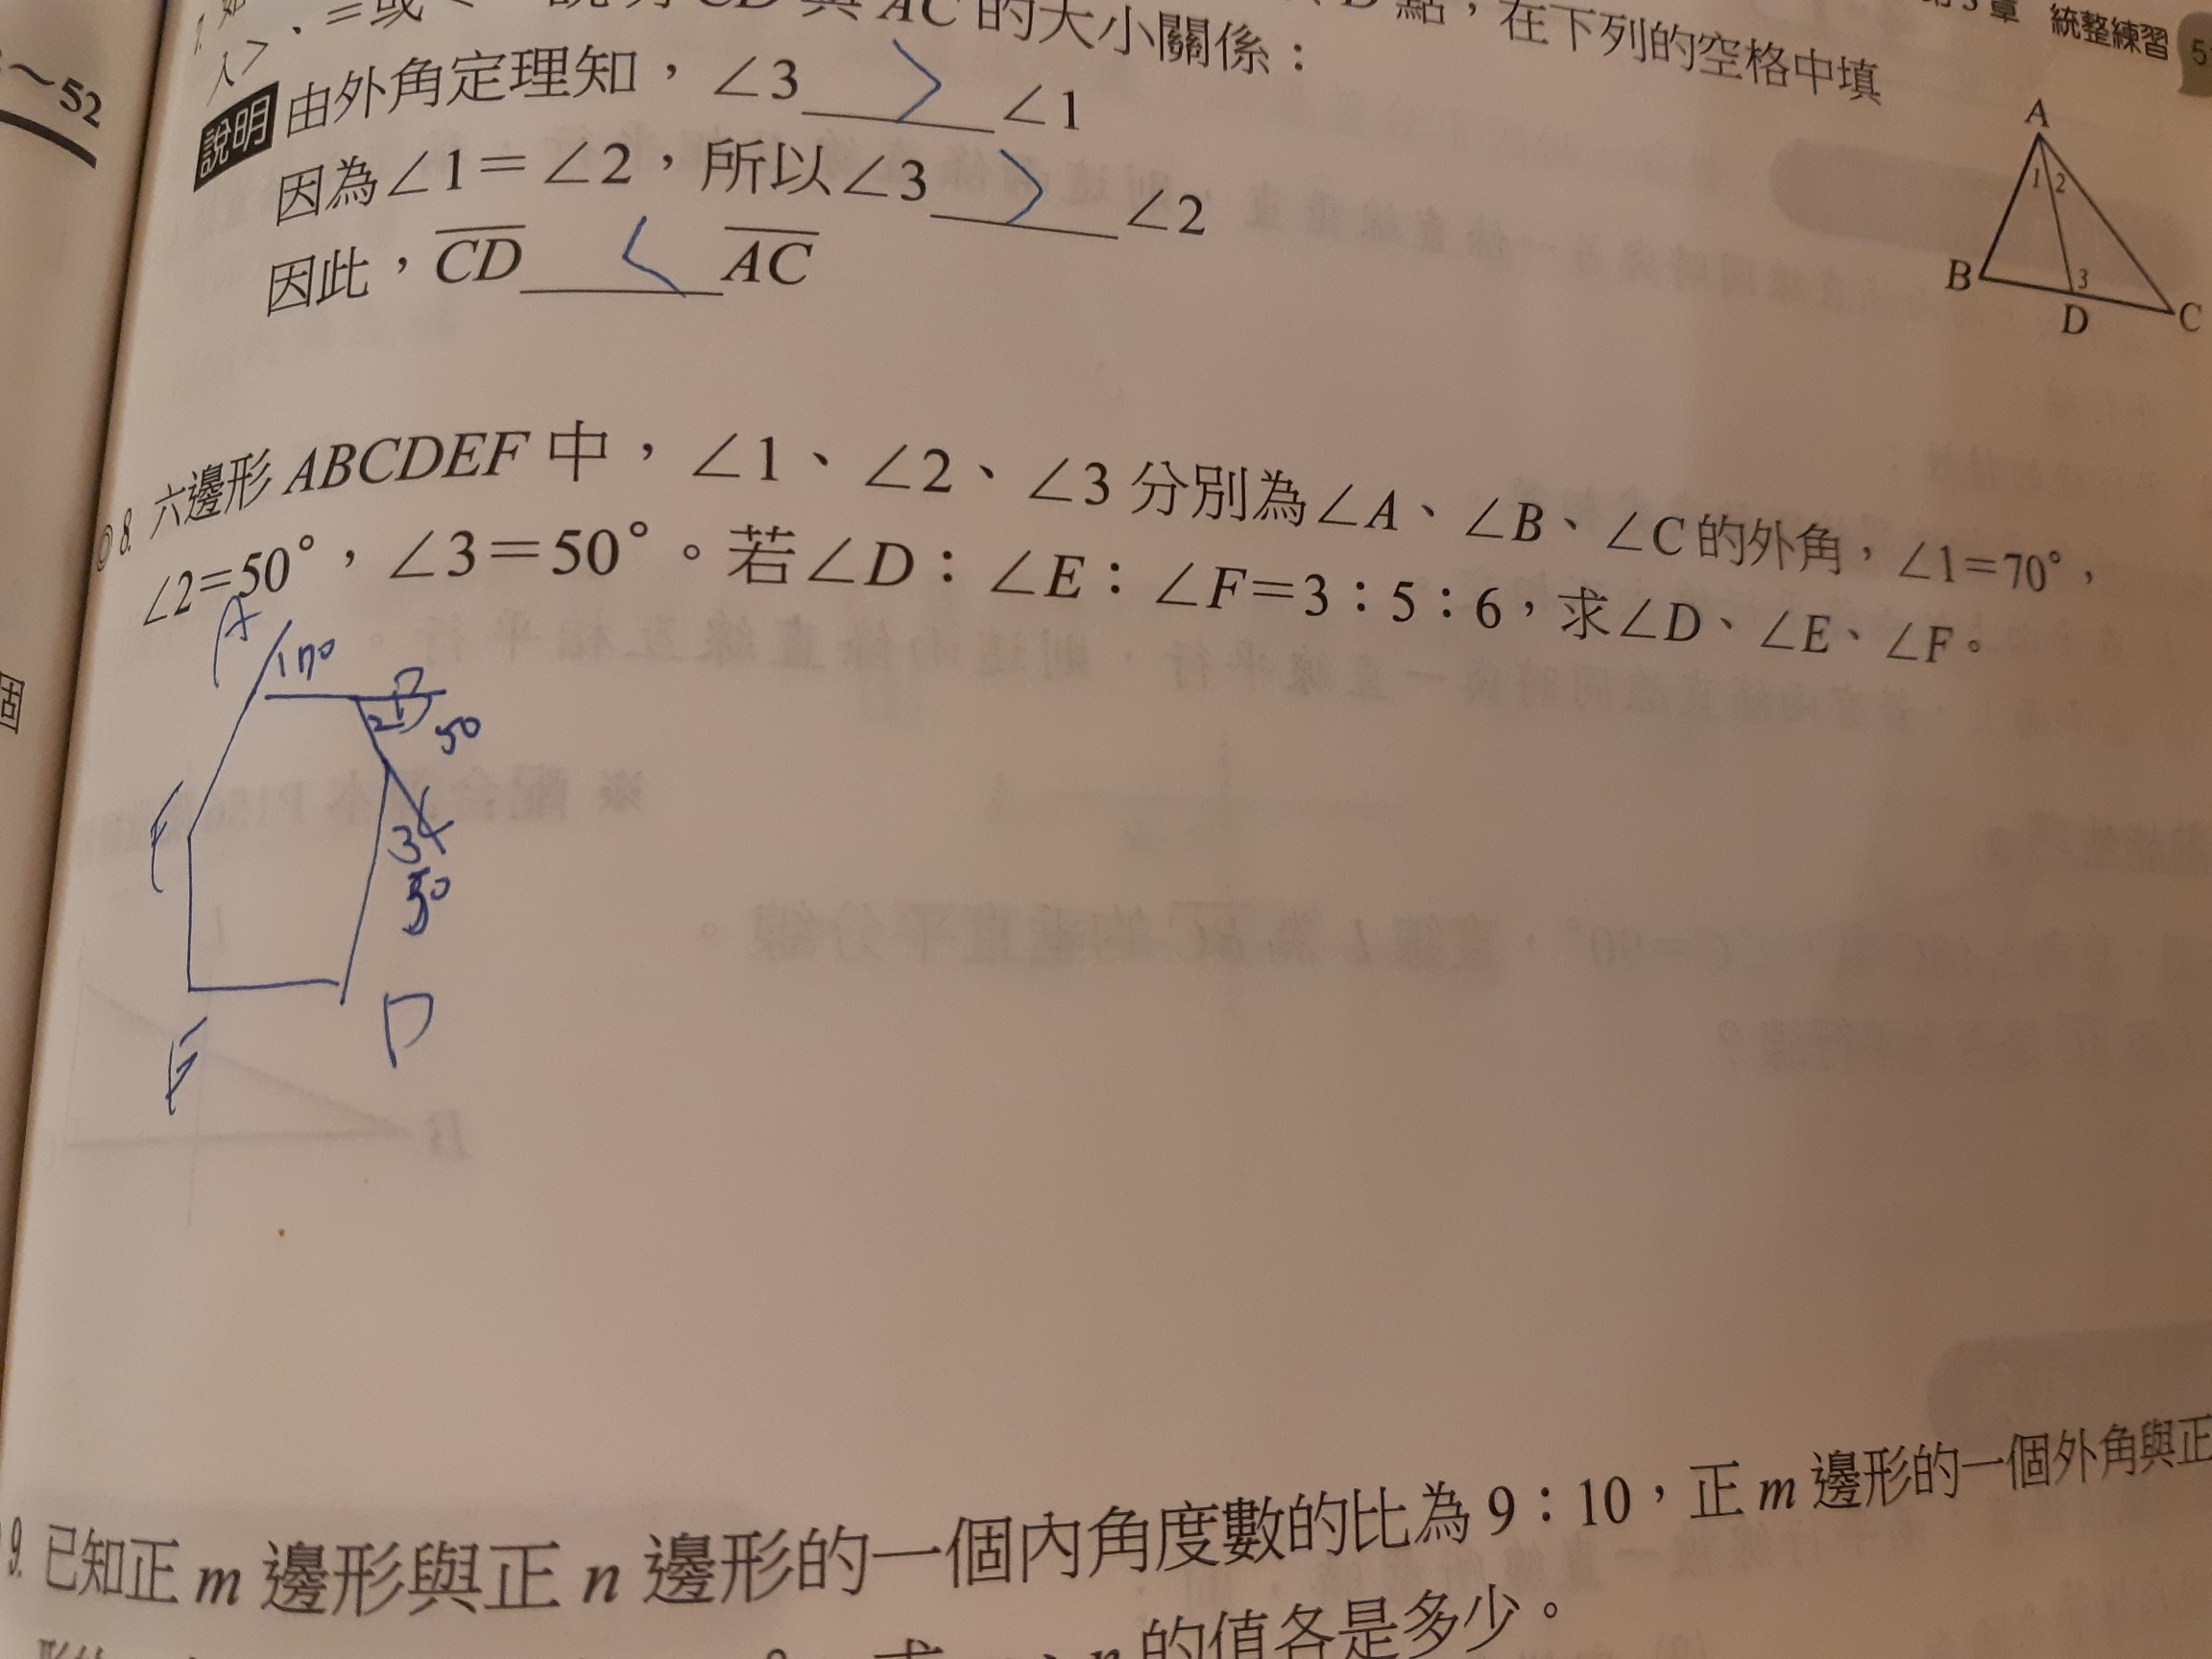 第3章 統整練習 5
~52
點，在下列的空格中填
入>、=或<，說明CD與AC的大小關係：
說明 由外角定理知，∠3 > ∠1
因為∠1=∠2，所以∠3 > ∠2
因此，CD < AC
A
1 2
B
3
D
C
8. 六邊形ABCDEF中，∠1、∠2、∠3分別為∠A、∠B、∠C的外角，∠1=70°，
∠2=50°，∠3=50°。若∠D：∠E：∠F=3：5：6，求∠D、∠E、∠F。
A
B
2
50
3
50
D
E
個
9. 已知正m邊形與正n邊形的一個內角度數的比為9：10，正m邊形的一個外角與正
的值各是多少。